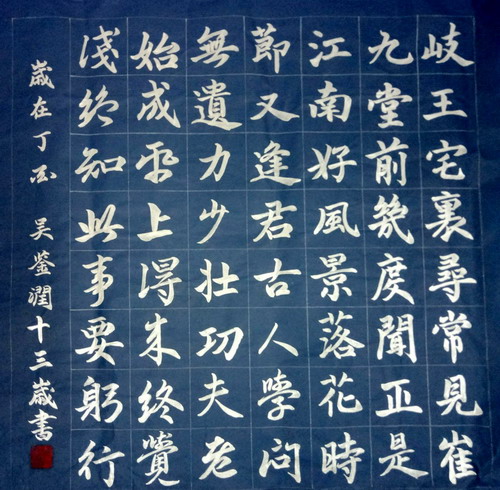 岐王宅裏尋常見崔
九堂前幾度聞正是
江南好風景落花時
節又逢君古人學問
無遺力少壯功夫老
始成帋上得来終覺
淺絕知此事要躬行
歲在丁酉 吴鋆潤十三歲書